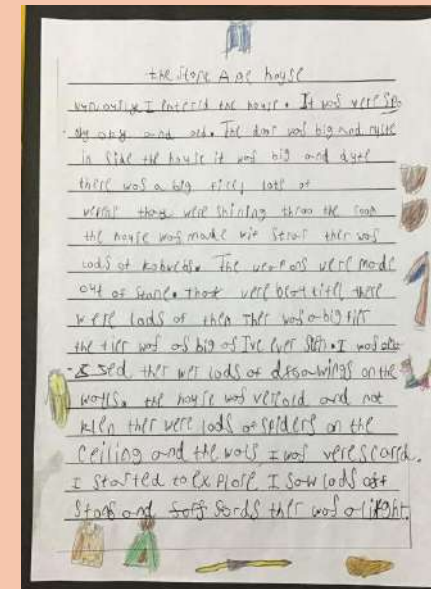 the Stone Age house
I entered the house. It was vere spo
oky and old. The door was big and
in side the house it was big and
there was a big fire, lots of
were shining throo the room
the house was made wif straw ther was
lods of kobwebs. The werpons were made
out of stone. thay were there
were lods of them Ther was a big fier
the fier was as big as I've ever Seen. I was
ther wer lods of drawings on the
walls. the house was vere old and not
klen ther were lods of spiders on the
ceiling and the wols I was vere scared.
I started to explore I saw lods off
and sords ther was a light.